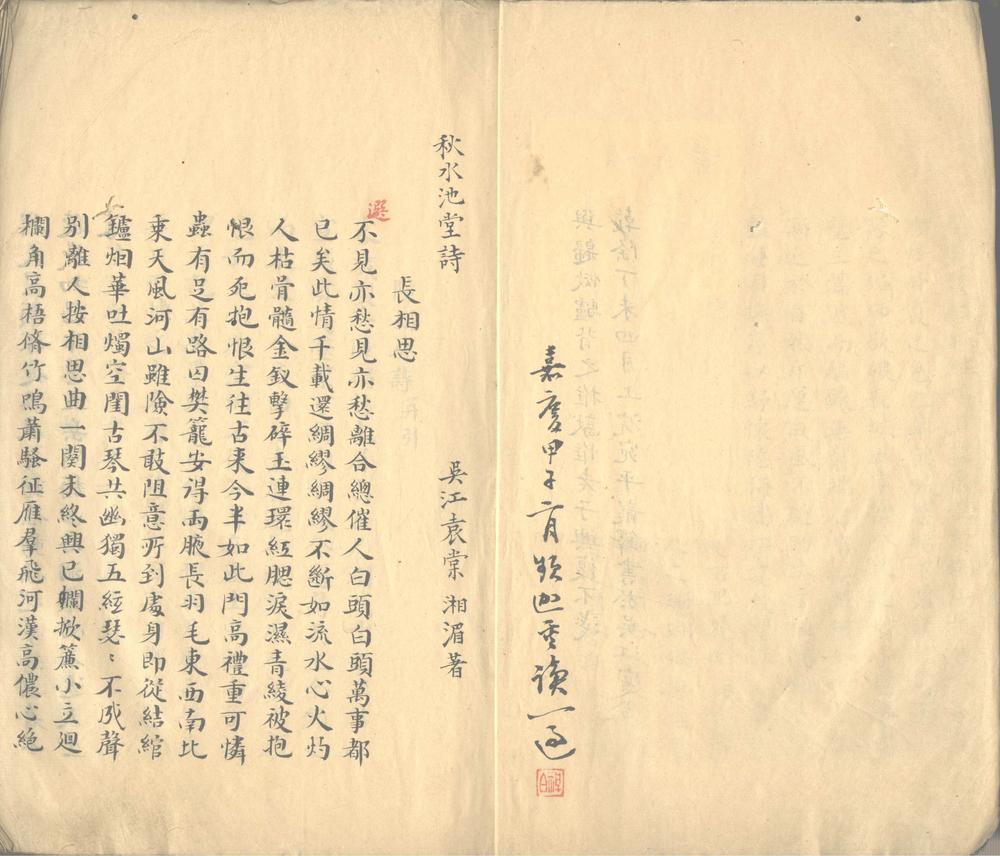 嘉慶甲子二月頻迦重讀一過
秋水池堂詩
吳江袁棠 湘湄著
長相思
選
不見亦愁見亦愁離合總催人白頭白頭萬事都
已矣此情千載還綢繆綢繆不斷如流水心火灼
人枯骨髓金釵擊碎玉連環紅腮淚濕青綾被抱
恨而死抱恨生往古來今半如此門高禮重可憐
蟲有足有路囚樊籠安得兩腋長羽毛東西南北
東天風河山雖險不敢阻意所到處身即從結綰
鑪烟華吐燭空閨古琴共幽獨五絃瑟〻不成聲
别離人按相思曲一闋未終興已闌掀簾小立迴
欄角高梧脩竹鳴蕭騷征雁羣飛河漢高儂心絶